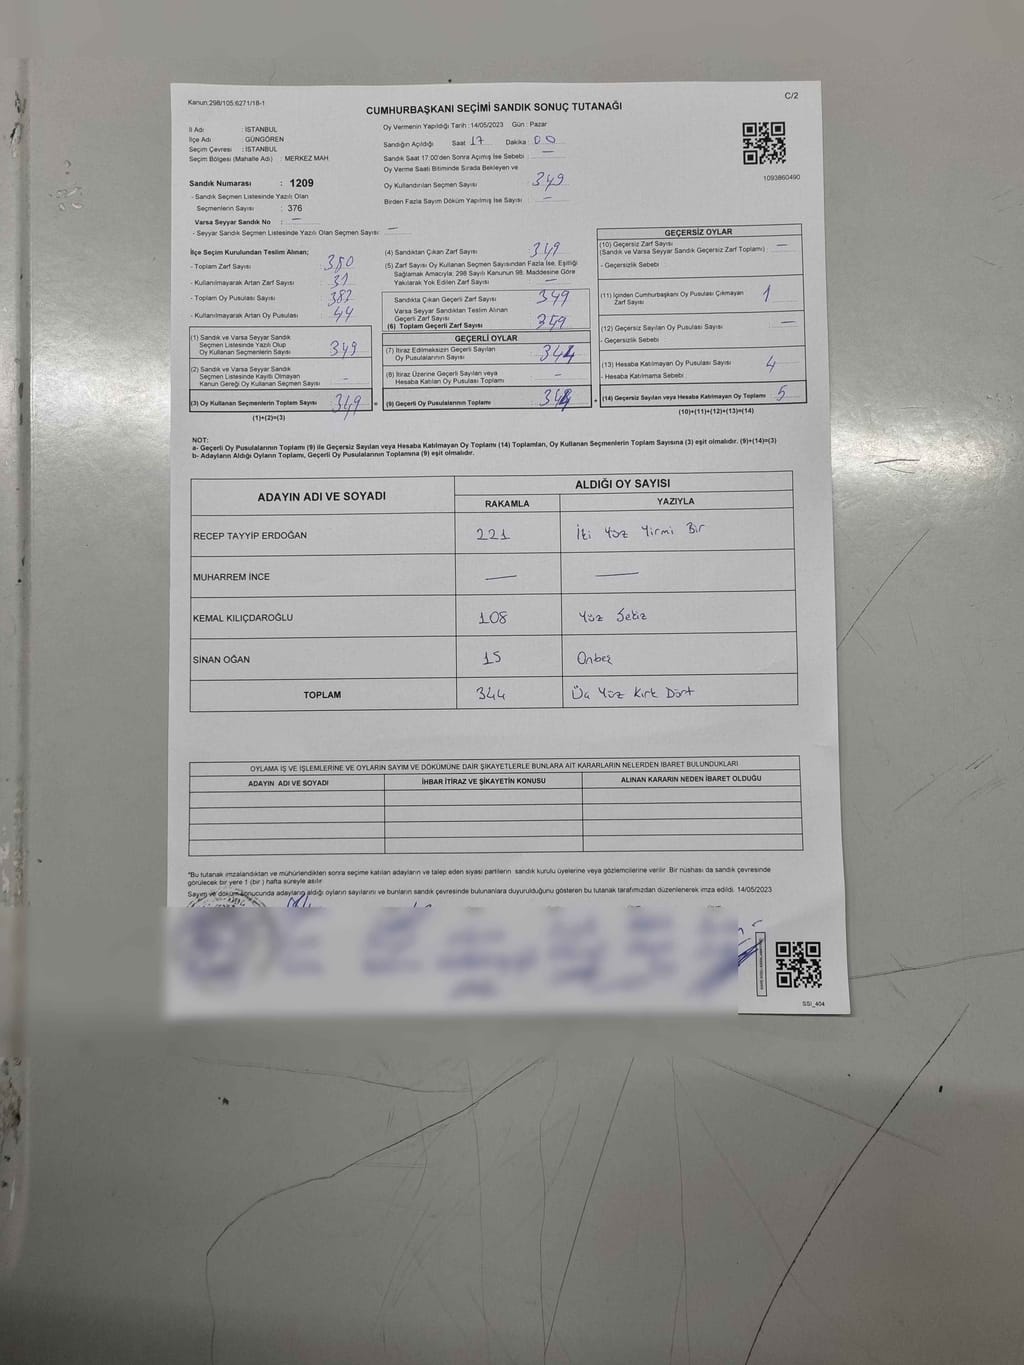 Kanun:298/105;6271/18-1
C/2
CUMHURBAŞKANI SEÇİMİ SANDIK SONUÇ TUTANAĞI
İl Adı : İSTANBUL
İlçe Adı : GÜNGÖREN
Seçim Çevresi : İSTANBUL
Seçim Bölgesi (Mahalle Adı) : MERKEZ MAH.
Oy Vermenin Yapıldığı Tarih : 14/05/2023 Gün : Pazar
Sandığın Açıldığı Saat 17 Dakika : 00
Sandık Saat 17:00'den Sonra Açımış İse Sebebi : —
Oy Verme Saati Bitiminde Sırada Bekleyen ve
Oy Kullandırılan Seçmen Sayısı 349
Birden Fazla Sayım Döküm Yapılmış İse Sayısı : -
1093860490
Sandık Numarası : 1209
- Sandık Seçmen Listesinde Yazılı Olan
Seçmenlerin Sayısı : 376
Varsa Seyyar Sandık No : —
- Seyyar Sandık Seçmen Listesinde Yazılı Olan Seçmen Sayısı: —
İlçe Seçim Kurulundan Teslim Alınan;
- Toplam Zarf Sayısı : 380
- Kullanılmayarak Artan Zarf Sayısı : 31
- Toplam Oy Pusulası Sayısı : 382
- Kullanılmayarak Artan Oy Pusulası : 44
(1) Sandık ve Varsa Seyyar Sandık
Seçmen Listesinde Yazılı Olup
Oy Kullanan Seçmenlerin Sayısı 349
(2) Sandık ve Varsa Seyyar Sandık
Seçmen Listesinde Kayıtlı Olmayan
Kanun Gereği Oy Kullanan Seçmen Sayısı -
(3) Oy Kullanan Seçmenlerin Toplam Sayısı 349
(1)+(2)=(3)
(4) Sandıktan Çıkan Zarf Sayısı 349
(5) Zarf Sayısı Oy Kullanan Seçmen Sayısından Fazla İse, Eşitliği
Sağlamak Amacıyla; 298 Sayılı Kanunun 98. Maddesine Göre
Yakılarak Yok Edilen Zarf Sayısı : —
Sandıkta Çıkan Geçerli Zarf Sayısı 349
Varsa Seyyar Sandıktan Teslim Alınan
Geçerli Zarf Sayısı
(6) Toplam Geçerli Zarf Sayısı 349
GEÇERLİ OYLAR
(7) İtiraz Edilmeksizin Geçerli Sayılan
Oy Pusulalarının Sayısı 344
(8) İtiraz Üzerine Geçerli Sayılan veya
Hesaba Katılan Oy Pusulası Toplamı -
(9) Geçerli Oy Pusulalarının Toplamı 344
GEÇERSİZ OYLAR
(10) Geçersiz Zarf Sayısı
(Sandık ve Varsa Seyyar Sandık Geçersiz Zarf Toplamı) : —
- Geçersizlik Sebebi :
(11) İçinden Cumhurbaşkanı Oy Pusulası Çıkmayan
Zarf Sayısı 1
(12) Geçersiz Sayılan Oy Pusulası Sayısı —
- Geçersizlik Sebebi :
(13) Hesaba Katılmayan Oy Pusulası Sayısı 4
- Hesaba Katılmama Sebebi :
(14) Geçersiz Sayılan veya Hesaba Katılmayan Oy Toplamı 5
(10)+(11)+(12)+(13)=(14)
NOT:
a- Geçerli Oy Pusulalarının Toplamı (9) ile Geçersiz Sayılan veya Hesaba Katılmayan Oy Toplamı (14) Toplamları, Oy Kullanan Seçmenlerin Toplam Sayısına (3) eşit olmalıdır. (9)+(14)=(3)
b- Adayların Aldığı Oyların Toplamı, Geçerli Oy Pusulalarının Toplamına (9) eşit olmalıdır.
ADAYIN ADI VE SOYADI ALDIĞI OY SAYISI
RAKAMLA YAZIYLA
RECEP TAYYİP ERDOĞAN 221 İki Yüz Yirmi Bir
MUHARREM İNCE — —
KEMAL KILIÇDAROĞLU 108 Yüz Sekiz
SİNAN OĞAN 15 Onbeş
TOPLAM 344 Üç Yüz Kırk Dört
OYLAMA İŞ VE İŞLEMLERİNE VE OYLARIN SAYIM VE DÖKÜMÜNE DAİR ŞİKAYETLERLE BUNLARA AİT KARARLARIN NELERDEN İBARET BULUNDUKLARI
ADAYIN ADI VE SOYADI İHBAR İTİRAZ VE ŞİKAYETİN KONUSU ALINAN KARARIN NEDEN İBARET OLDUĞU
*Bu tutanak imzalandıktan ve mühürlendikten sonra seçime katılan adayların ve talep eden siyasi partilerin sandık kurulu üyelerine veya gözlemcilerine verilir. Bir nüshası da sandık çevresinde
görülecek bir yere 1 (bir ) hafta süreyle asılır.
Sayım ve döküm sonucunda adayların aldığı oyların sayılarını ve bunların sandık çevresinde bulunanlara duyurulduğunu gösteren bu tutanak tarafımızdan düzenlenerek imza edildi. 14/05/2023
SSI_404